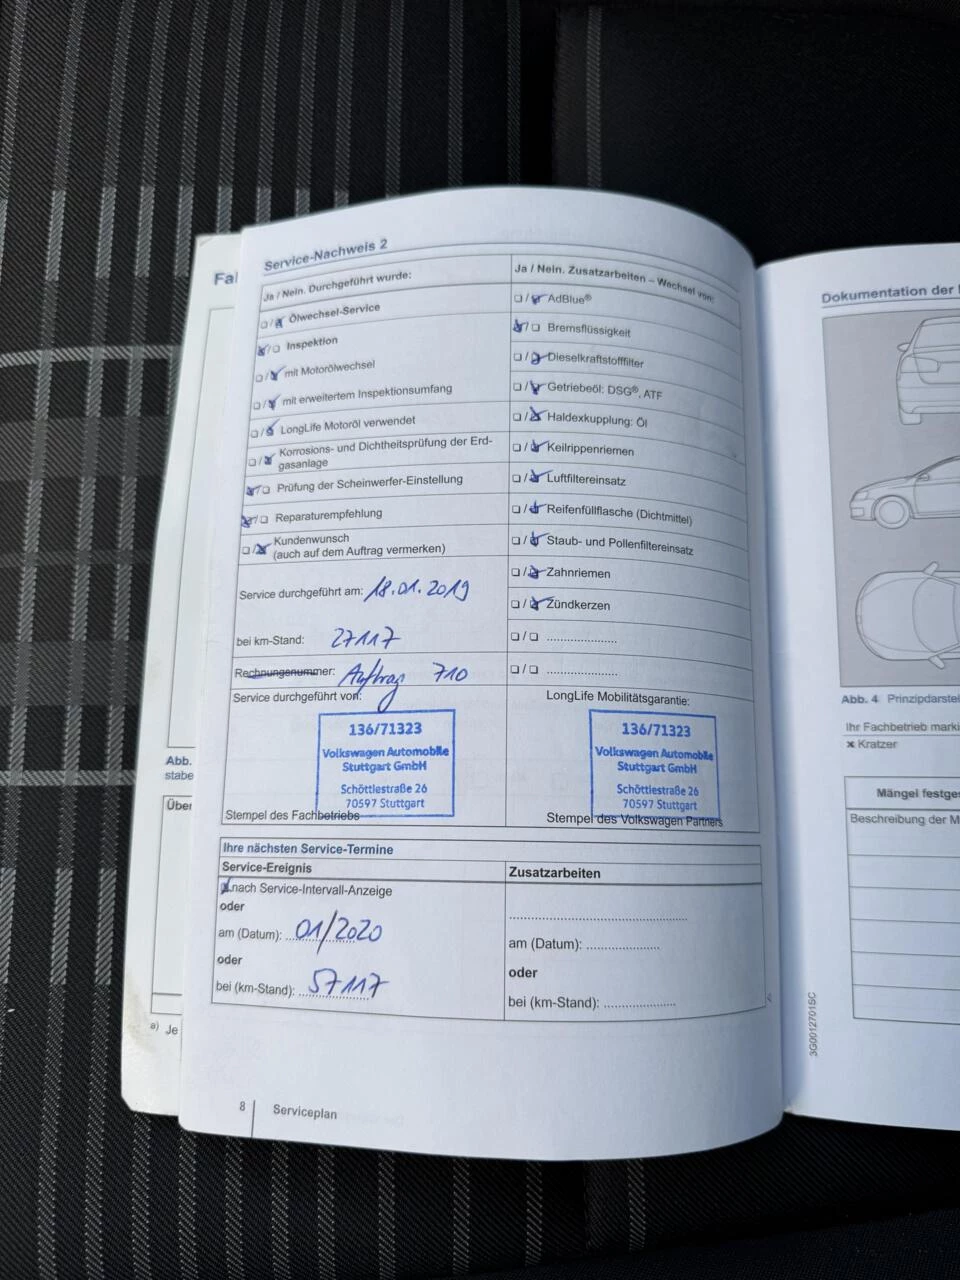 Service-Nachweis 2
Ja / Nein. Durchgeführt wurde:
☐/☒ Ölwechsel-Service
☒/☐ Inspektion
☐/☒ mit Motorölwechsel
☐/☒ mit erweitertem Inspektionsumfang
☐/☒ LongLife Motoröl verwendet
☐/☒ Korrosions- und Dichtheitsprüfung der Erd-
gasanlage
☒/☐ Prüfung der Scheinwerfer-Einstellung
☒/☐ Reparaturempfehlung
☐/☒ Kundenwunsch
(auch auf dem Auftrag vermerken)
Service durchgeführt am: 18.01.2019
bei km-Stand: 27117
Rechnungsnummer: Auftrag 710
Service durchgeführt von:
136/71323
Volkswagen Automobile
Stuttgart GmbH
Schöttlestraße 26
70597 Stuttgart
Stempel des Fachbetriebs
Ja / Nein. Zusatzarbeiten – Wechsel von:
☐/☒ AdBlue®
☒/☐ Bremsflüssigkeit
☐/☒ Dieselkraftstofffilter
☐/☒ Getriebeöl: DSG®, ATF
☐/☒ Haldexkupplung: Öl
☐/☒ Keilrippenriemen
☐/☒ Luftfiltereinsatz
☐/☒ Reifenfüllflasche (Dichtmittel)
☐/☒ Staub- und Pollenfiltereinsatz
☐/☒ Zahnriemen
☐/☒ Zündkerzen
☐/☐ ....................
☐/☐ ....................
LongLife Mobilitätsgarantie:
136/71323
Volkswagen Automobile
Stuttgart GmbH
Schöttlestraße 26
70597 Stuttgart
Stempel des Volkswagen Partners
Ihre nächsten Service-Termine
Service-Ereignis
☒ nach Service-Intervall-Anzeige
oder
am (Datum): 01/2020
oder
bei (km-Stand): 57117
Zusatzarbeiten
..................................................
am (Datum): ....................
oder
bei (km-Stand): ....................
8 Serviceplan
Abb.
stabe
Über
a) Je
Dokumentation der
Abb. 4 Prinzipdarstel
Ihr Fachbetrieb marki
x Kratzer
Mängel festges
Beschreibung der M
3G0012701SC